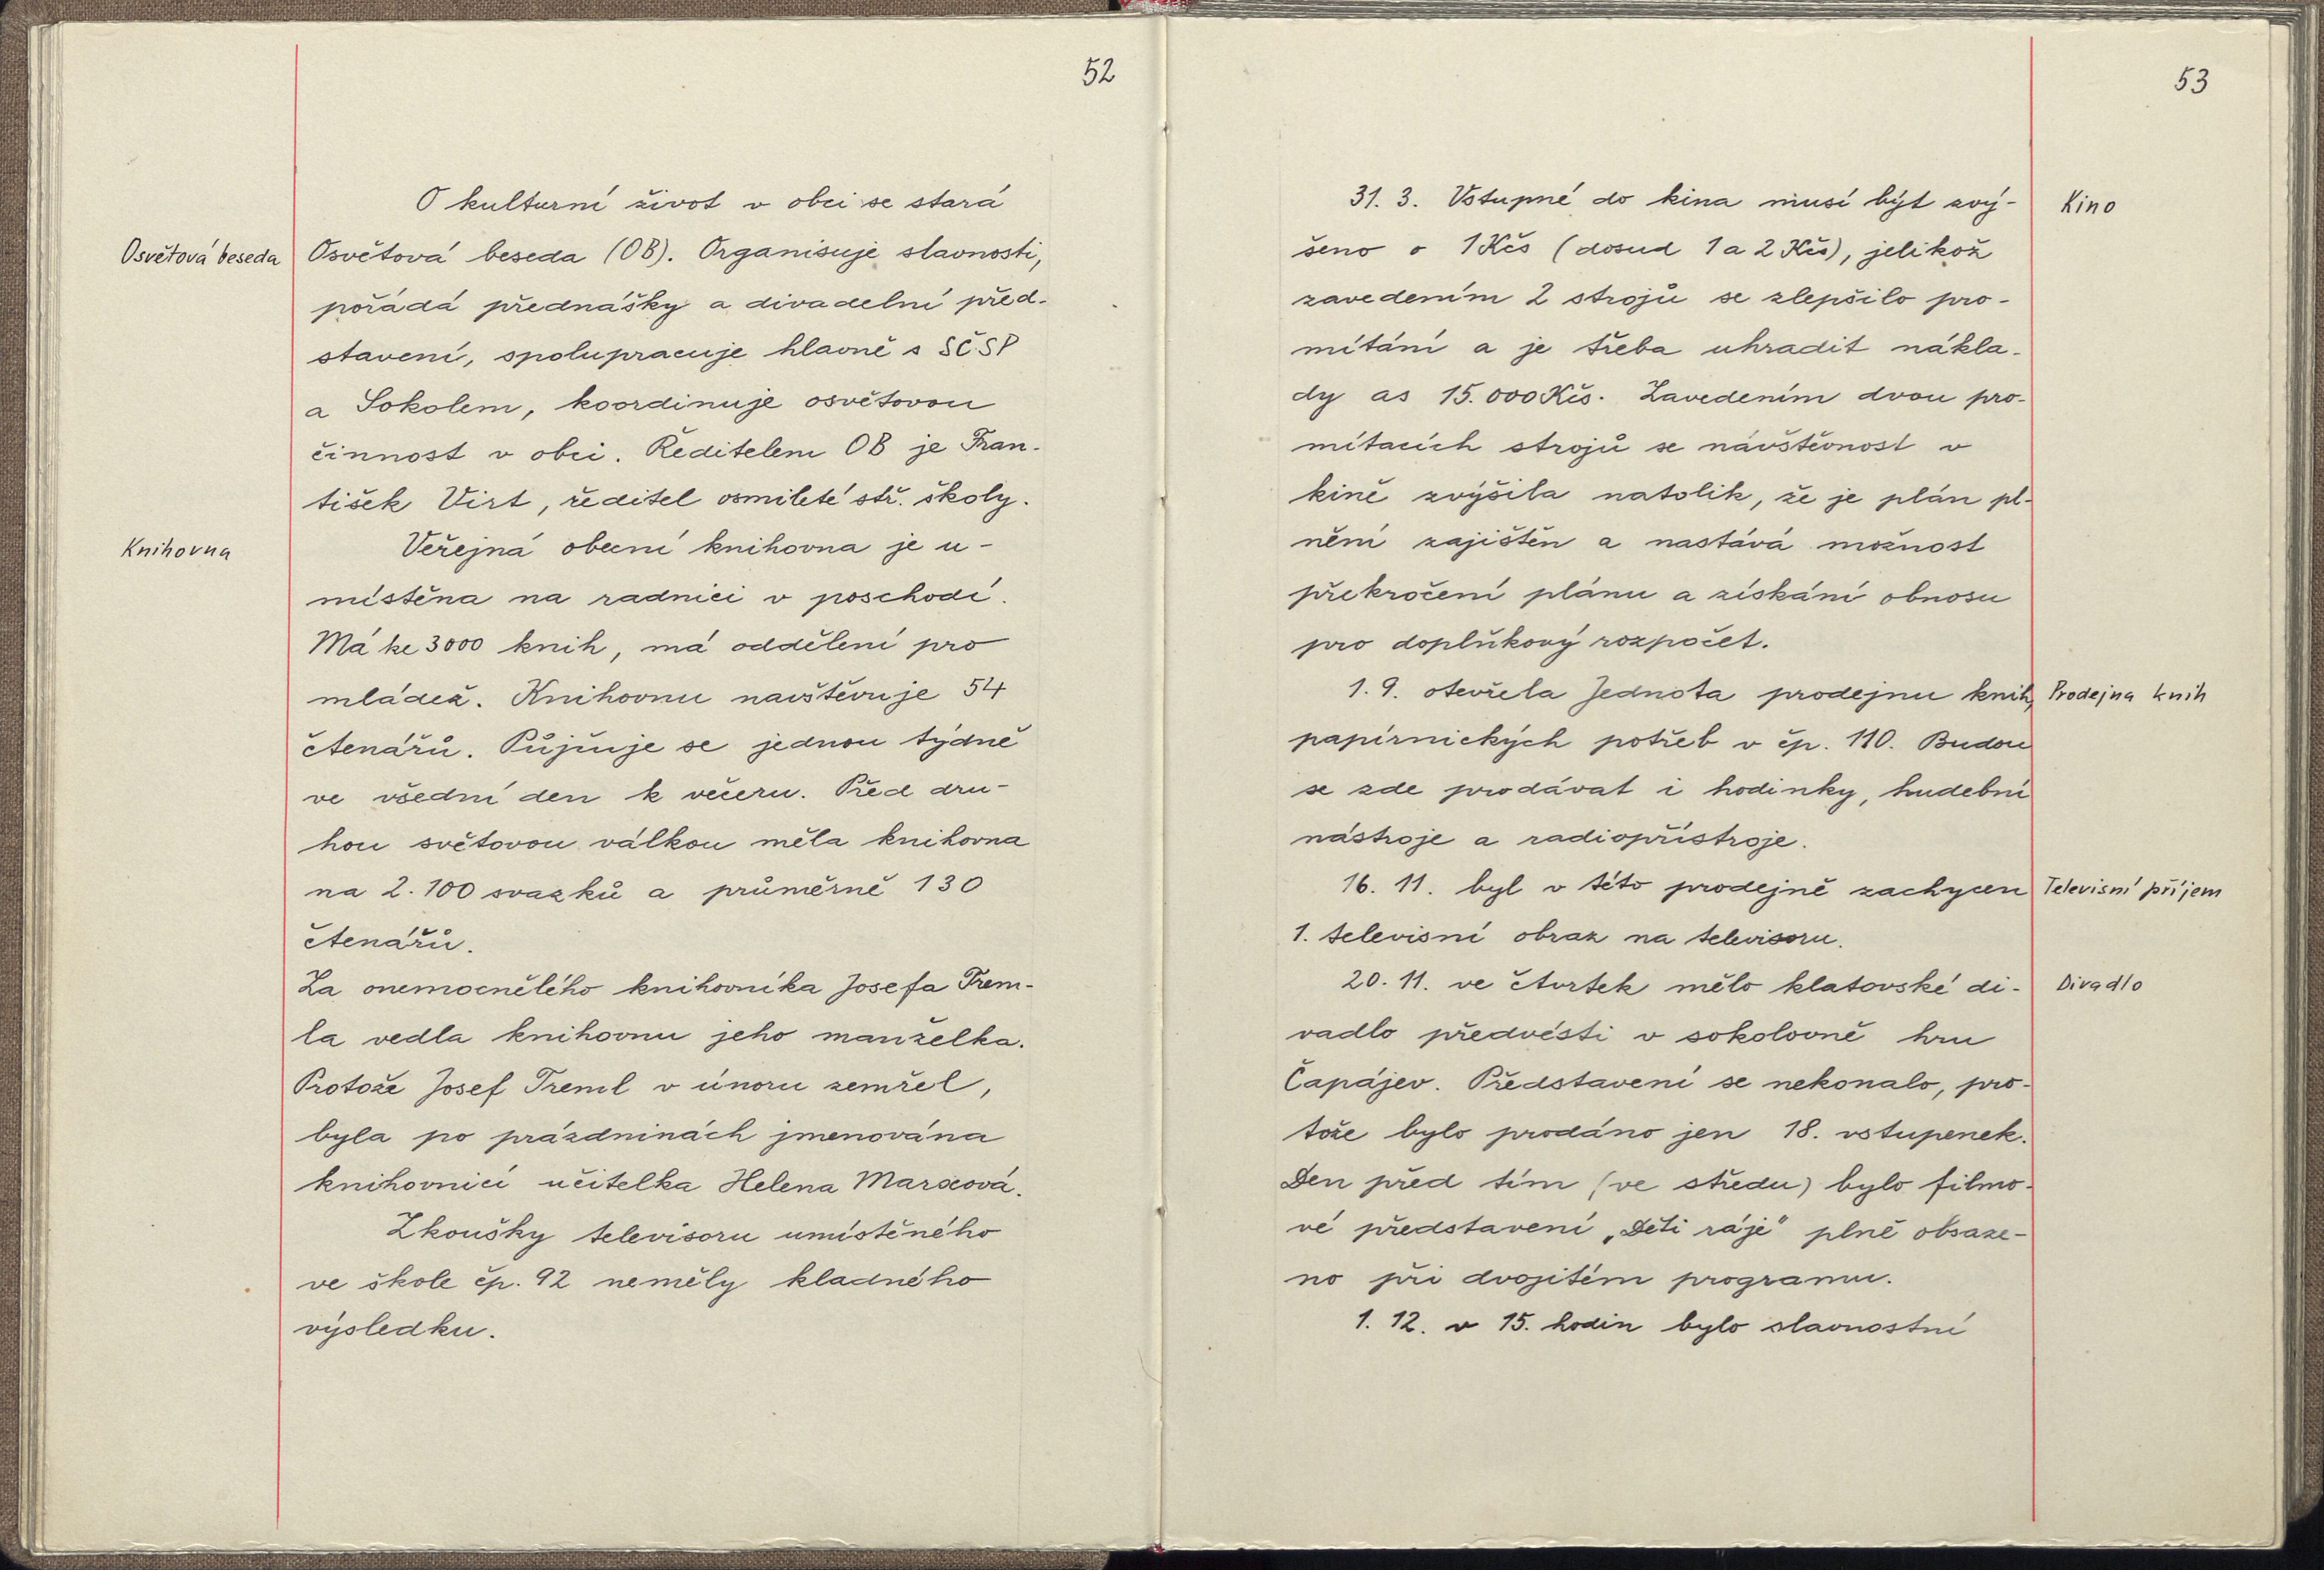 52
O kulturní život v obci se stará
Osvětová beseda
Osvětová beseda (OB). Organisuje slavnosti,
pořádá přednášky a divadelní před-
stavení, spolupracuje hlavně s SČSP
a Sokolem, koordinuje osvětovou
činnost v obci. Ředitelem OB je Fran-
tišek Virt, ředitel osmileté stř. školy.
Knihovna
Veřejná obecní knihovna je u-
místěna na radnici v poschodí.
Má ke 3000 knih, má oddělení pro
mládež. Knihovnu navštěvuje 54
čtenářů. Půjčuje se jednou týdně
ve všední den k večeru. Před dru-
hou světovou válkou měla knihovna
na 2.100 svazků a průměrně 130
čtenářů.
Za onemocnělého knihovníka Josefa Trem-
la vedla knihovnu jeho manželka.
Protože Josef Treml v únoru zemřel,
byla po prázdninách jmenována
knihovnicí učitelka Helena Marxová.
Zkoušky televisoru umístěného
ve škole čp. 92 neměly kladného
výsledku.
53
31. 3. Vstupné do kina musí být zvý-
Kino
šeno o 1 Kčs (dosud 1 a 2 Kčs), jelikož
zavedením 2 strojů se zlepšilo pro-
mítání a je třeba uhradit nákla-
dy as 15.000 Kčs. Zavedením dvou pro-
mítacích strojů se návštěvnost v
kině zvýšila natolik, že je plán pl-
nění zajištěn a nastává možnost
překročení plánu a získání obnosu
pro doplňkový rozpočet.
1. 9. otevřela Jednota prodejnu knih,
Prodejna knih
papírnických potřeb v čp. 110. Budou
se zde prodávat i hodinky, hudební
nástroje a radiopřístroje.
16. 11. byl v této prodejně zachycen
Televisní příjem
1. televisní obraz na televisoru.
20. 11. ve čtvrtek mělo klatovské di-
Divadlo
vadlo předvésti v sokolovně hru
Čapájev. Představení se nekonalo, pro-
tože bylo prodáno jen 18. vstupenek.
Den před tím (ve středu) bylo filmo-
vé představení „Děti ráje" plně obsaze-
no při dvojitém programu.
1. 12. v 15. hodin bylo slavnostní